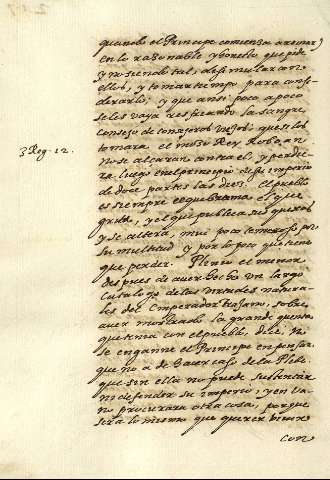 quando el Principe comienza a reinar)
en lo razonable y honesto que pide
y no siendo tal, disimular con
ellos, y tomar tiempo para consi-
derarlo; y que ansi poco a poco
se les vaya resfriando la sangre,
consejo de consejeros viejos que si los
3 Reg. 12. tomara el mozo Rey Roboan
no se alçaran contra el, y perdie-
ra, luego en el principio de su imperio
de doce partes las diez. El pueblo
es siempre el que el que
grita, y el que publica sus quexas
y se altera, mui poco temeroso por
su multitud y por lo poco que tiene
que perder. Plinio el menor
despues de aver hecho un largo
Catalogo de las virtudes natura-
les del Emperador trajano, sobre
aver mostrado la grande quenta
que tenia con el pueblo, dice: no
se engañe el Principe en pensar
que no a de hacer caso de la Plebe
que sin ella no puede sustentar
ni defender su imperio, y en va-
no procurara otra cosa, porque
sera lo mismo que querer vivir
con